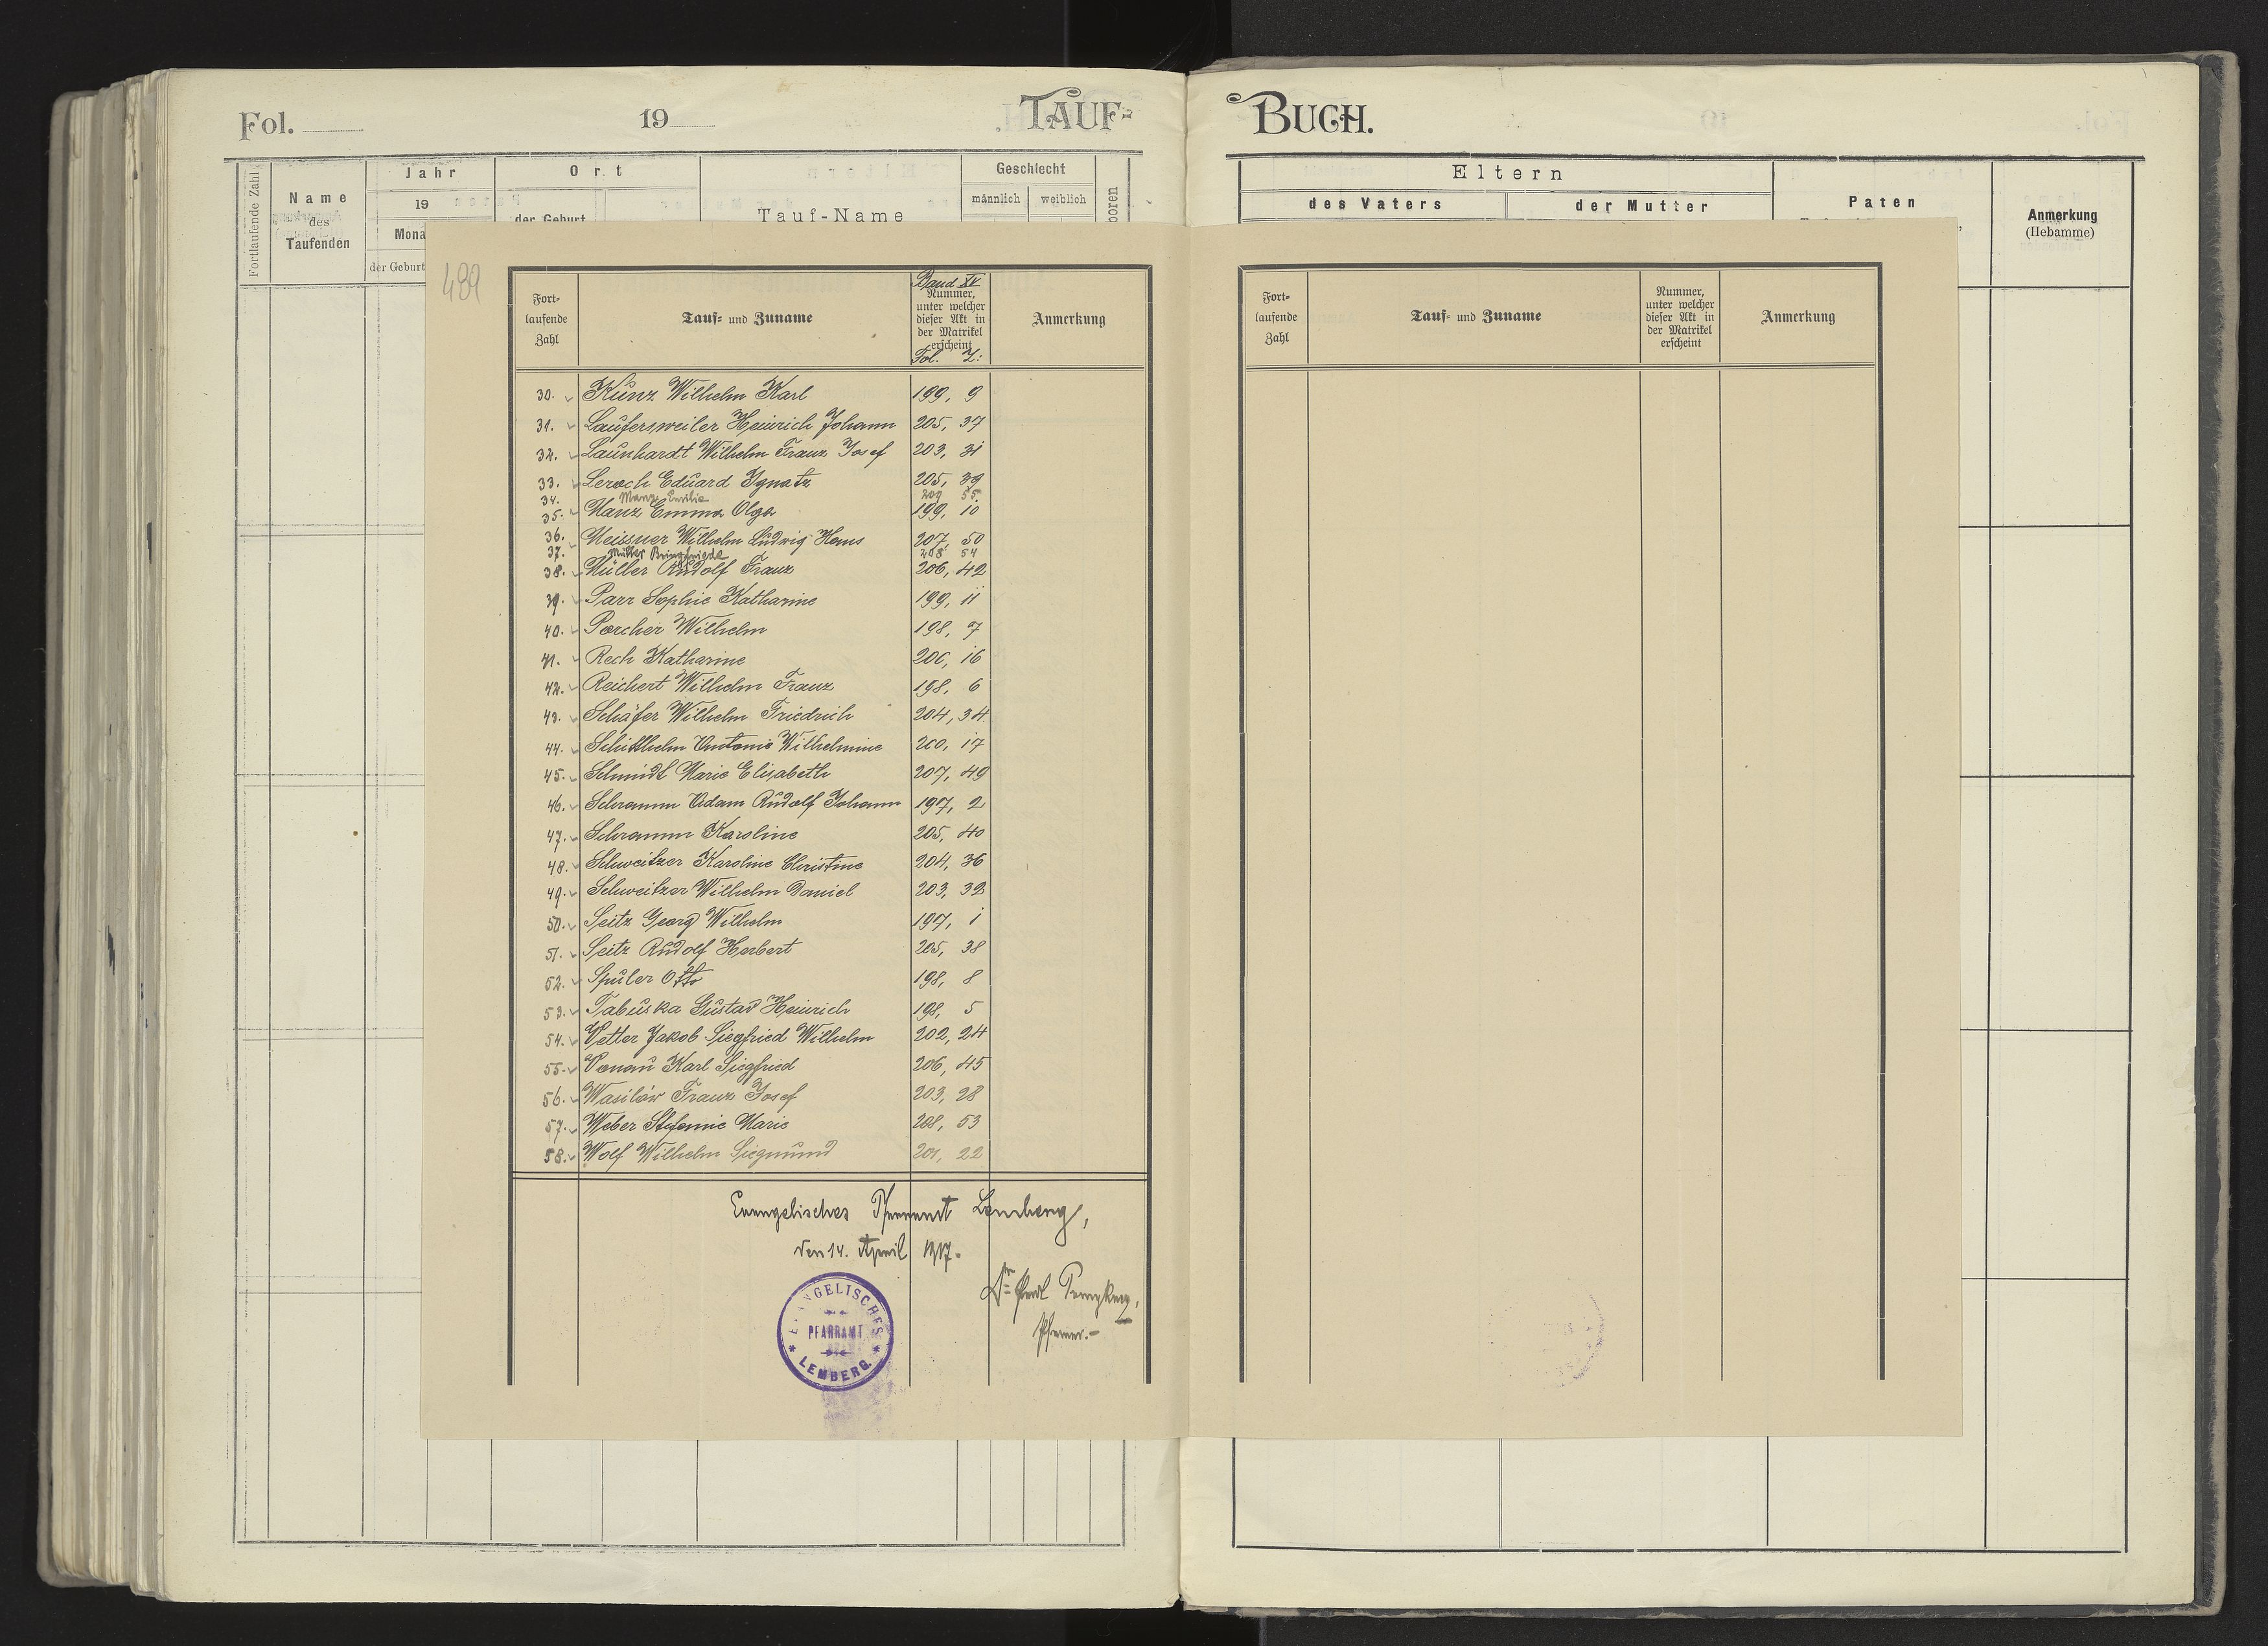 Fol.
19
TAUF-
BUCH.
Fortlaufende Zahl
Name
des
Taufenden
Jahr
19
Mona
der Geburt
Ort
der Geburt
Tauf-Name
Geschlecht
männlich weiblich
boren
Eltern
des Vaters
der Mutter
Paten
Anmerkung
(Hebamme)
489
Fort-
laufende
Zahl
Tauf- und Zuname
Band XV
Nummer,
unter welcher
dieser Akt in
der Matrikel
erscheint
Fol. Z:
Anmerkung
30. Kunz Wilhelm Karl 199, 9
31. Laufersweiler Heinrich Johann 205, 37
32. Launhardt Wilhelm Franz Josef 203, 31
33. Lerach Eduard Ignatz 205, 39
34. Manz Emilie 209 55
35. Manz Emma Olga 199, 10
36. Meissner Wilhelm Ludwig Hans 207, 50
37. Müller 208 54
38. Müller Rudolf Franz 206, 42
39. Parr Sophie Katharine 199, 11
40. Porcher Wilhelm 198, 7
41. Rech Katharine 200, 16
42. Reichert Wilhelm Franz 198, 6
43. Schäfer Wilhelm Friedrich 204, 34
44. Schittlhelm Antonie Wilhelmine 200, 17
45. Schmidt Marie Elisabeth 207, 49
46. Schramm Adam Rudolf Johann 197, 2
47. Schramm Karoline 205, 40
48. Schweitzer Karoline Christine 204, 36
49. Schweitzer Wilhelm Daniel 203, 32
50. Seitz Georg Wilhelm 197, 1
51. Seitz Rudolf Herbert 205, 38
52. Spuler Otto 198, 8
53. Tabuska Gustav Heinrich 198, 5
54. Vetter Jakob Siegfried Wilhelm 202, 24
55. Vonau Karl Siegfried 206, 45
56. Wasilów Franz Josef 203, 28
57. Weber Stefanie Marie 208, 53
58. Wolf Wilhelm Siegmund 201, 22
Evangelisches Pfarramt Lemberg,
den 14. April 1917.
Dr
Pfarrer.
EVANGELISCHES
PFARRAMT
* LEMBERG. *
Fort-
laufende
Zahl
Tauf- und Zuname
Nummer,
unter welcher
dieser Akt in
der Matrikel
erscheint
Anmerkung